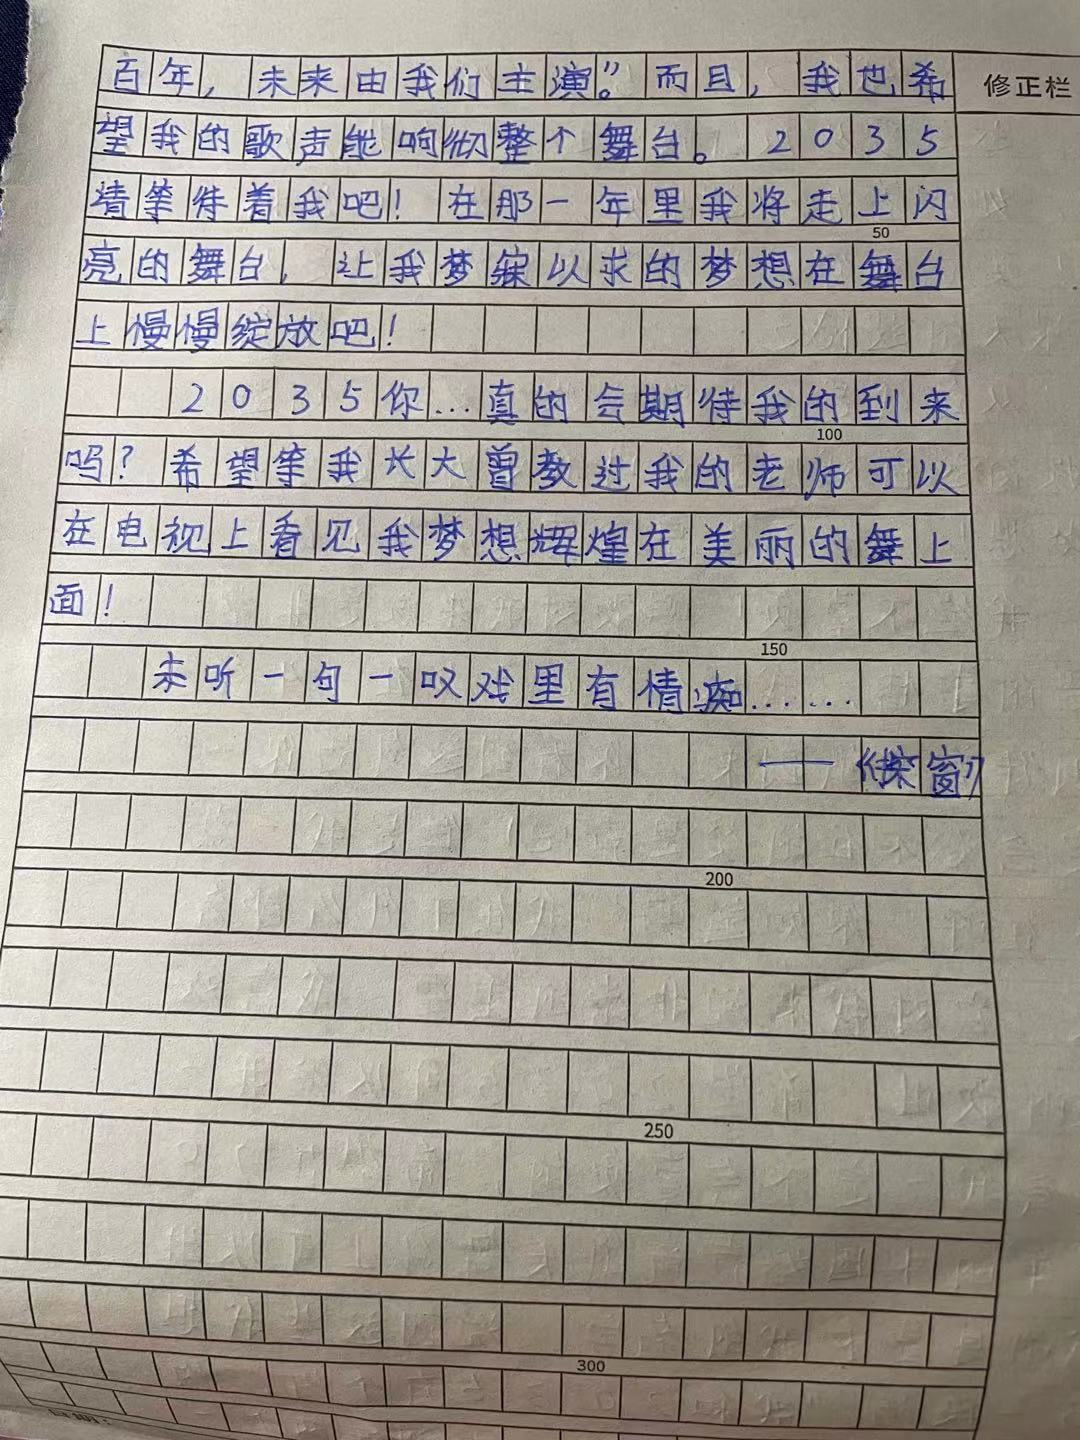 百年，未来由我们主演”。而且，我也希
修正栏
望我的歌声能响彻整个舞台。2035
请等待着我吧！在那一年里我将走上闪
50
亮的舞台，让我梦寐以求的梦想在舞台
上慢慢绽放吧！
2035你…真的会期待我的到来
100
吗？希望等我长大曾教过我的老师可以
在电视上看见我梦想辉煌在美丽的舞上
面！
150
未听一句一叹戏里有情痴……
——《探窗》
200
250
300